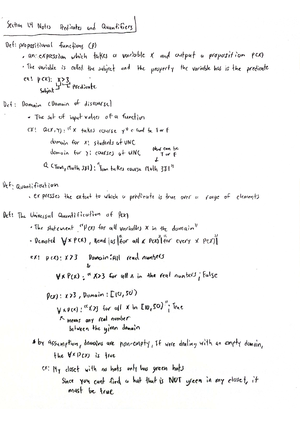 Section 1.4 Notes Predicates and Quantifiers
Def: propositional functions (P)
• an expression which takes a variable x and output a proposition p(x)
• The variable is called the subject and the property the variable has is the predicate
ex: p(x): x>3
Subject Predicate
Def: Domain (Domain of discourse)
• The set of input values of a function
ex: Q(x,y): "x takes course y" & can't be T or F
domain for x: students at UNC
domain for y: courses at UNC
Now can be
T or F
Q(Tom, Math 381): "Tom takes course Math 381"
Def: Quantification
• expresses the extent to which a predicate is true over a range of elements
Def: The Universal Quantification of P(x)
• The statement "P(x) for all variables x in the domain"
• Denoted ∀x P(x), Read as "for all x P(x)" "for every x P(x)"
ex: p(x): x>3 Domain: All real numbers
∀x P(x): "x>3 for all x in the real numbers; False
P(x): x>3, Domain: [10,50)
∀x P(x): "x>3 for all x in [10,50)"; True
^ means any real number
between the given domain
* by assumption, domains are non-empty, If were dealing with an empty domain,
the ∀x P(x) is true
ex: My closet with no hats only has green hats
Since you cant find a hat that is NOT green in my closet, it
must be true